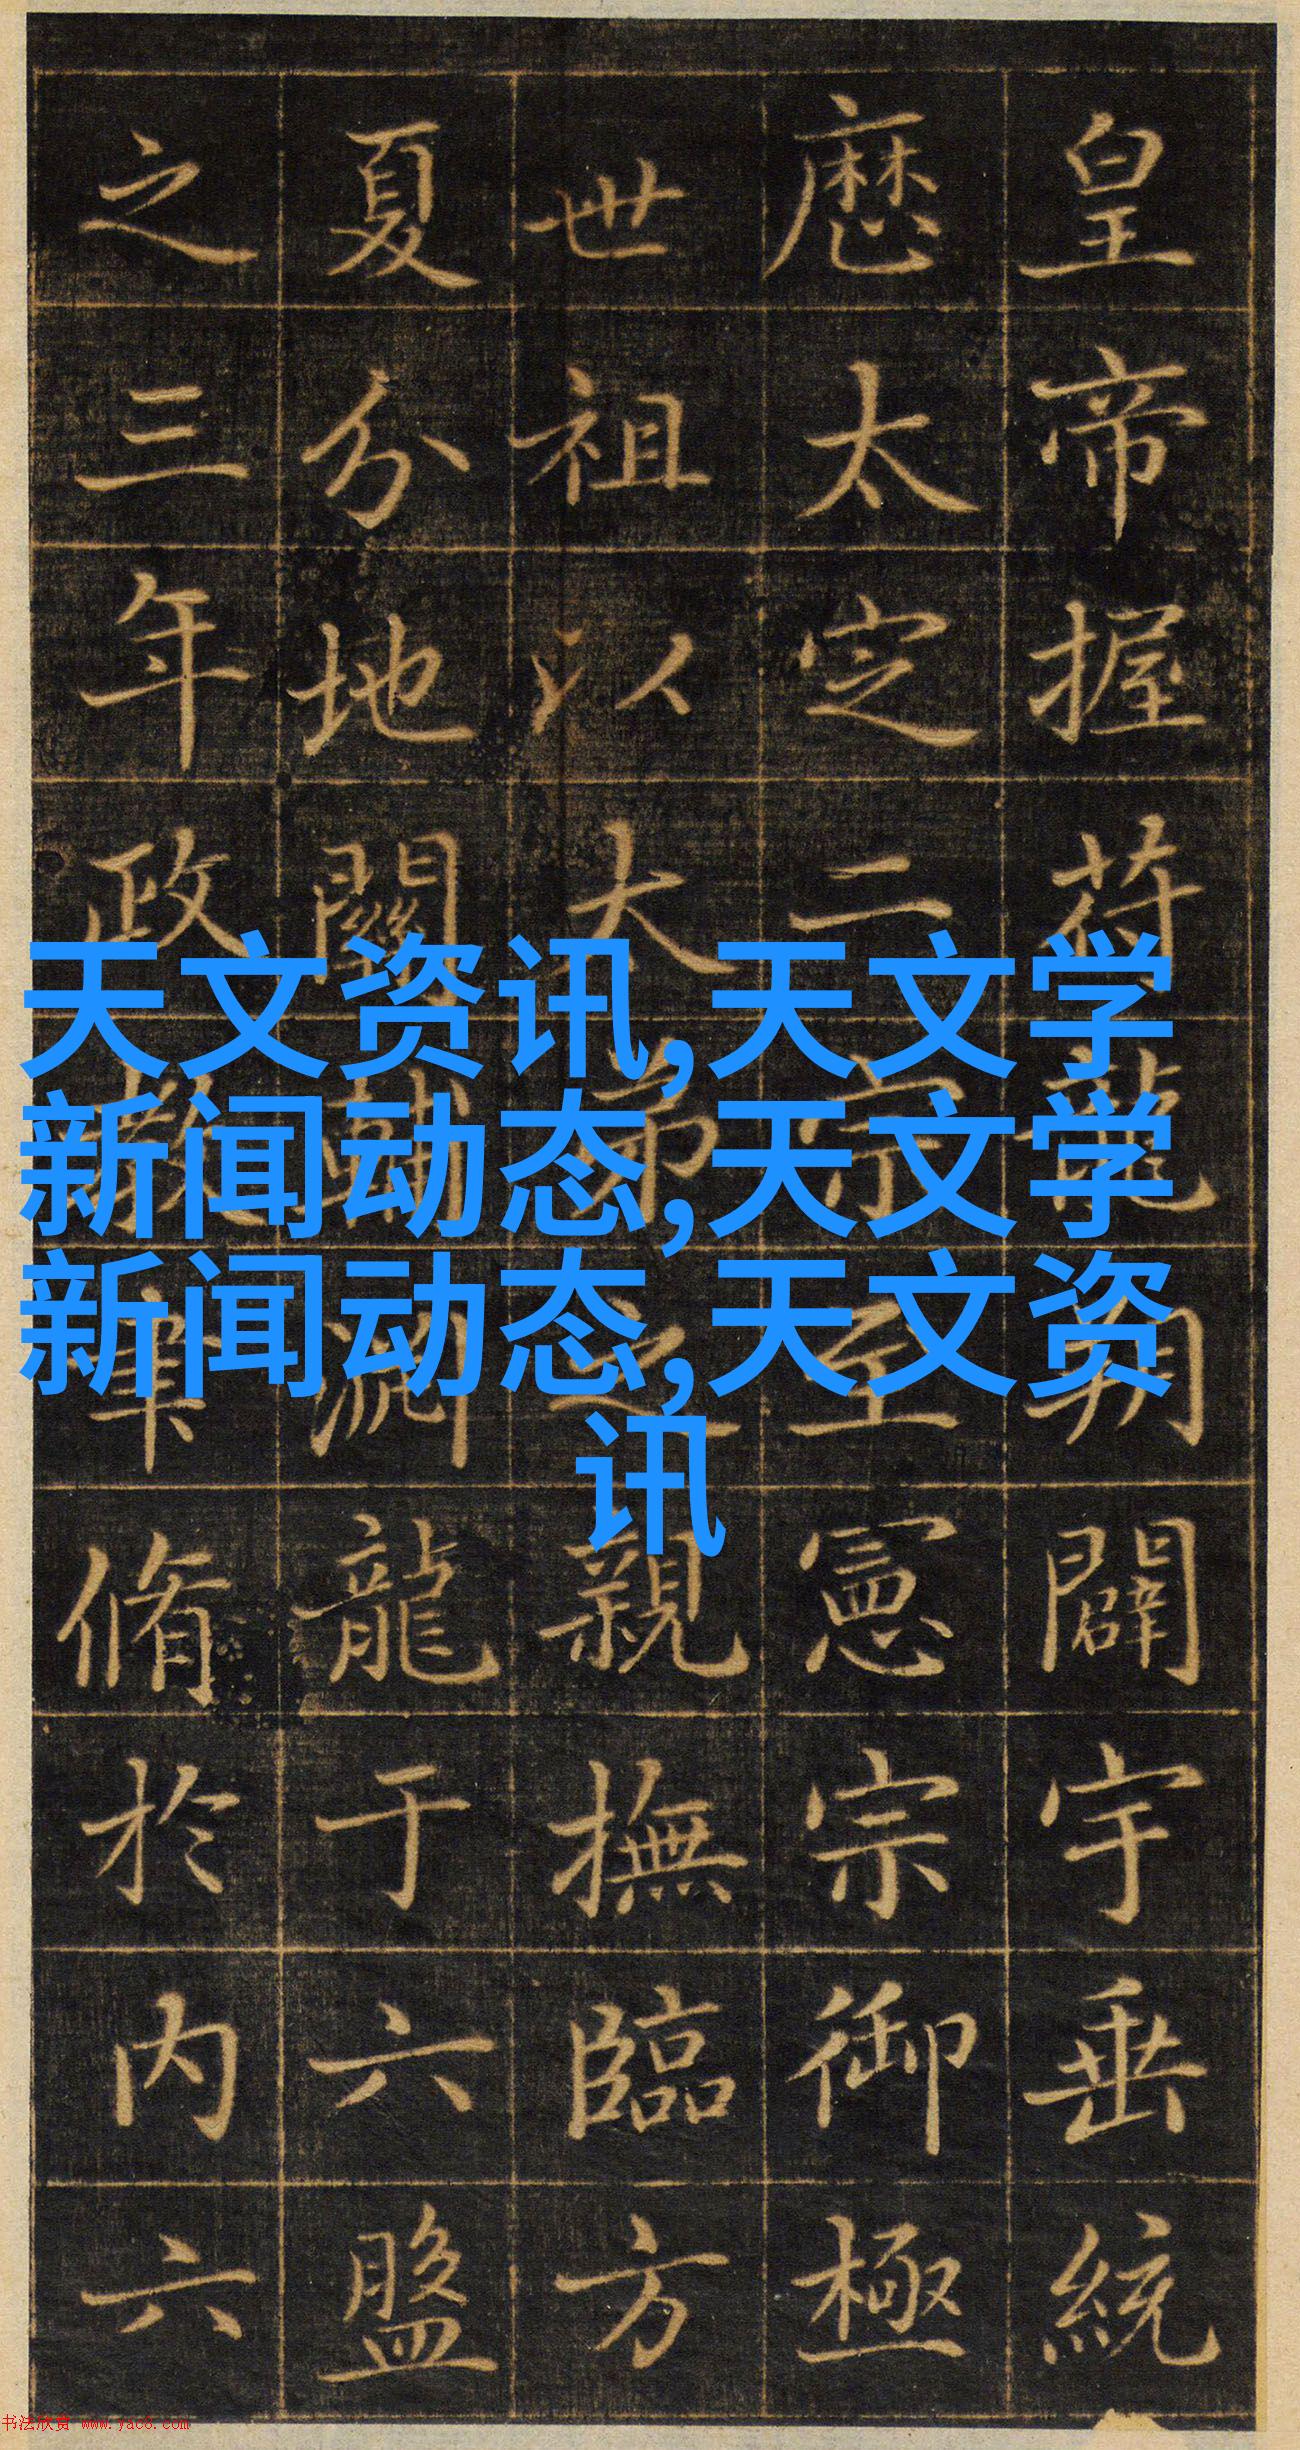 皇帝握符龍朔闢宇垂統
厯太定二宗至憲宗御極
世祖以太弟之親撫臨方
夏分地關輔淵龍于六盤
之三年政教聿脩於内六
天文资讯,天文学
新闻动态,天文学
新闻动态,天文资
讯
书法欣赏 www.yac8.com